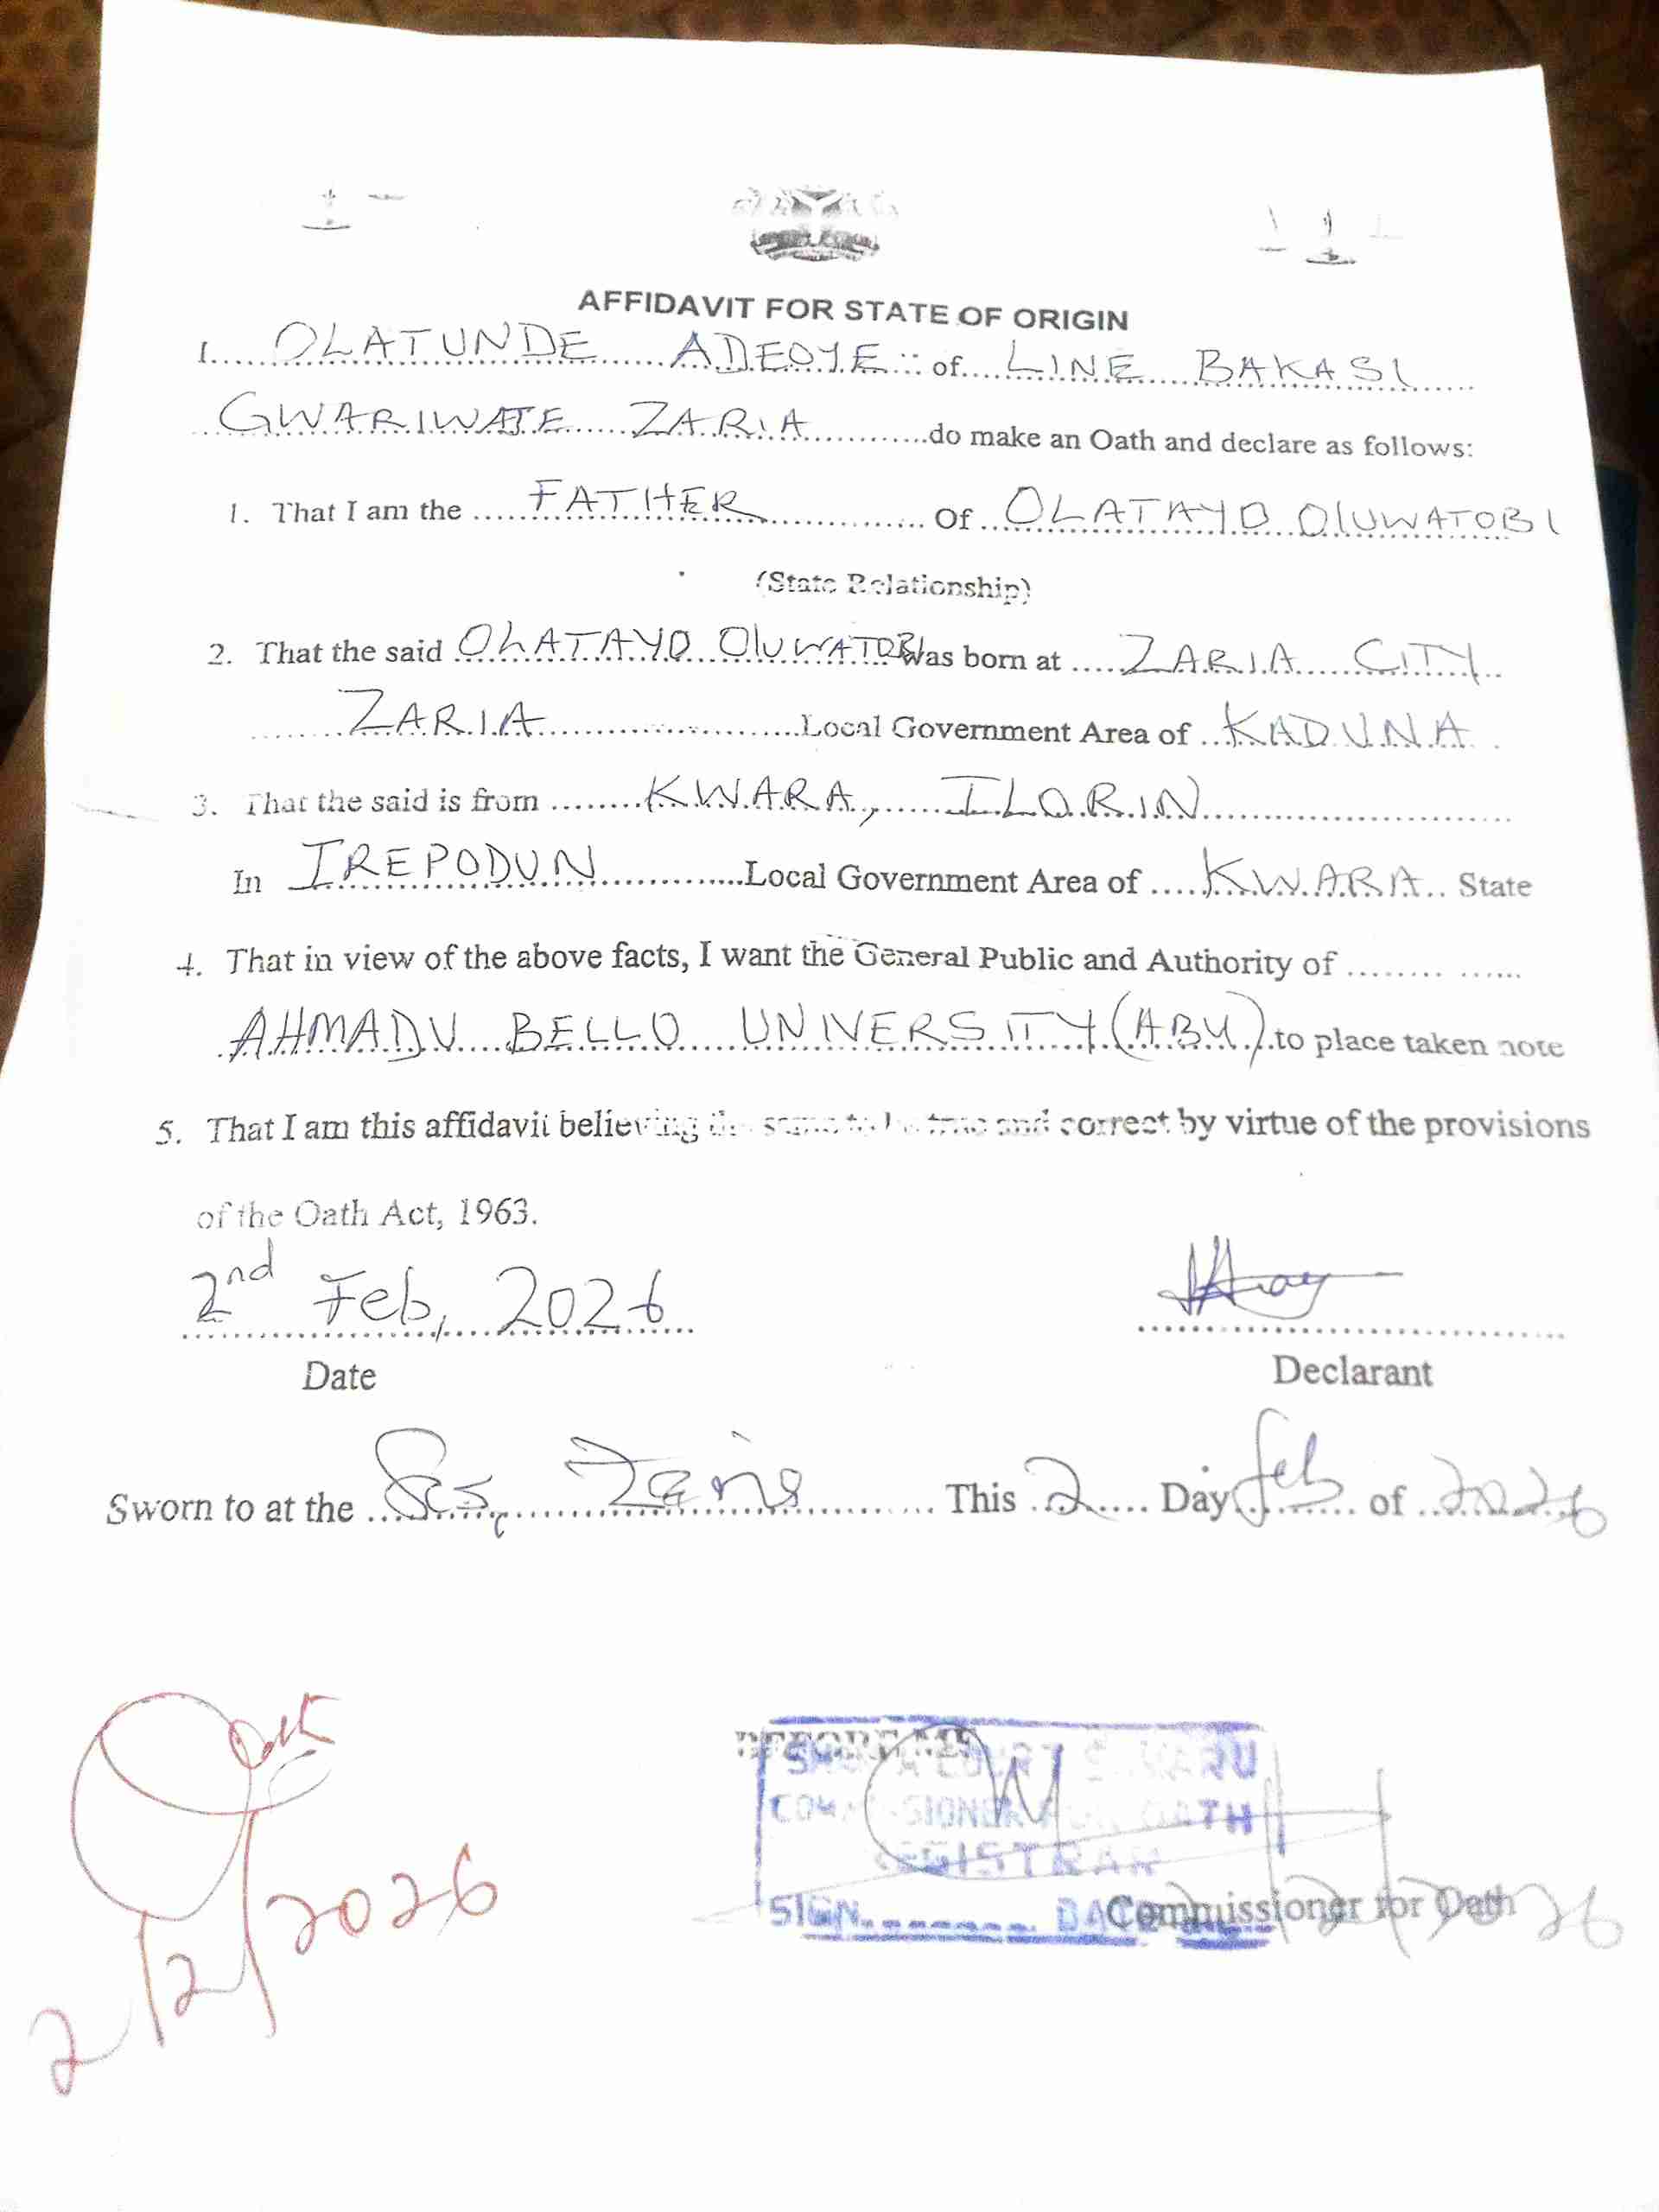 AFFIDAVIT FOR STATE OF ORIGIN
I..... OLATUNDE ADEOYE of.... LINE BAKASI
GWARIWAJE ZARIA ............do make an Oath and declare as follows:
1. That I am the ..... FATHER ................ Of .. OLATAYO OlUWATOBI
(State Relationship)
2. That the said OLATAYO OlUWATOBI was born at ..... ZARIA CITY
ZARIA ..................Local Government Area of .. KADUNA
3. That the said is from ........ KWARA, ILORIN ....................
In IREPODUN ............Local Government Area of .... KWARA .. State
4. That in view of the above facts, I want the General Public and Authority of ........ ......
AHMADU BELLO UNIVERSITY (ABU) to place taken note
5. That I am this affidavit believing the same to be true and correct by virtue of the provisions
of the Oath Act, 1963.
2nd Feb, 2026
Date
Declarant
Sworn to at the ... ............. This 2 .... Day feb ..... of 2026
Oath
2/2/2026
BEFORE ME
COURT
COMMISSIONER FOR OATH
REGISTRAR
SIGN DATE
Commissioner for Oath